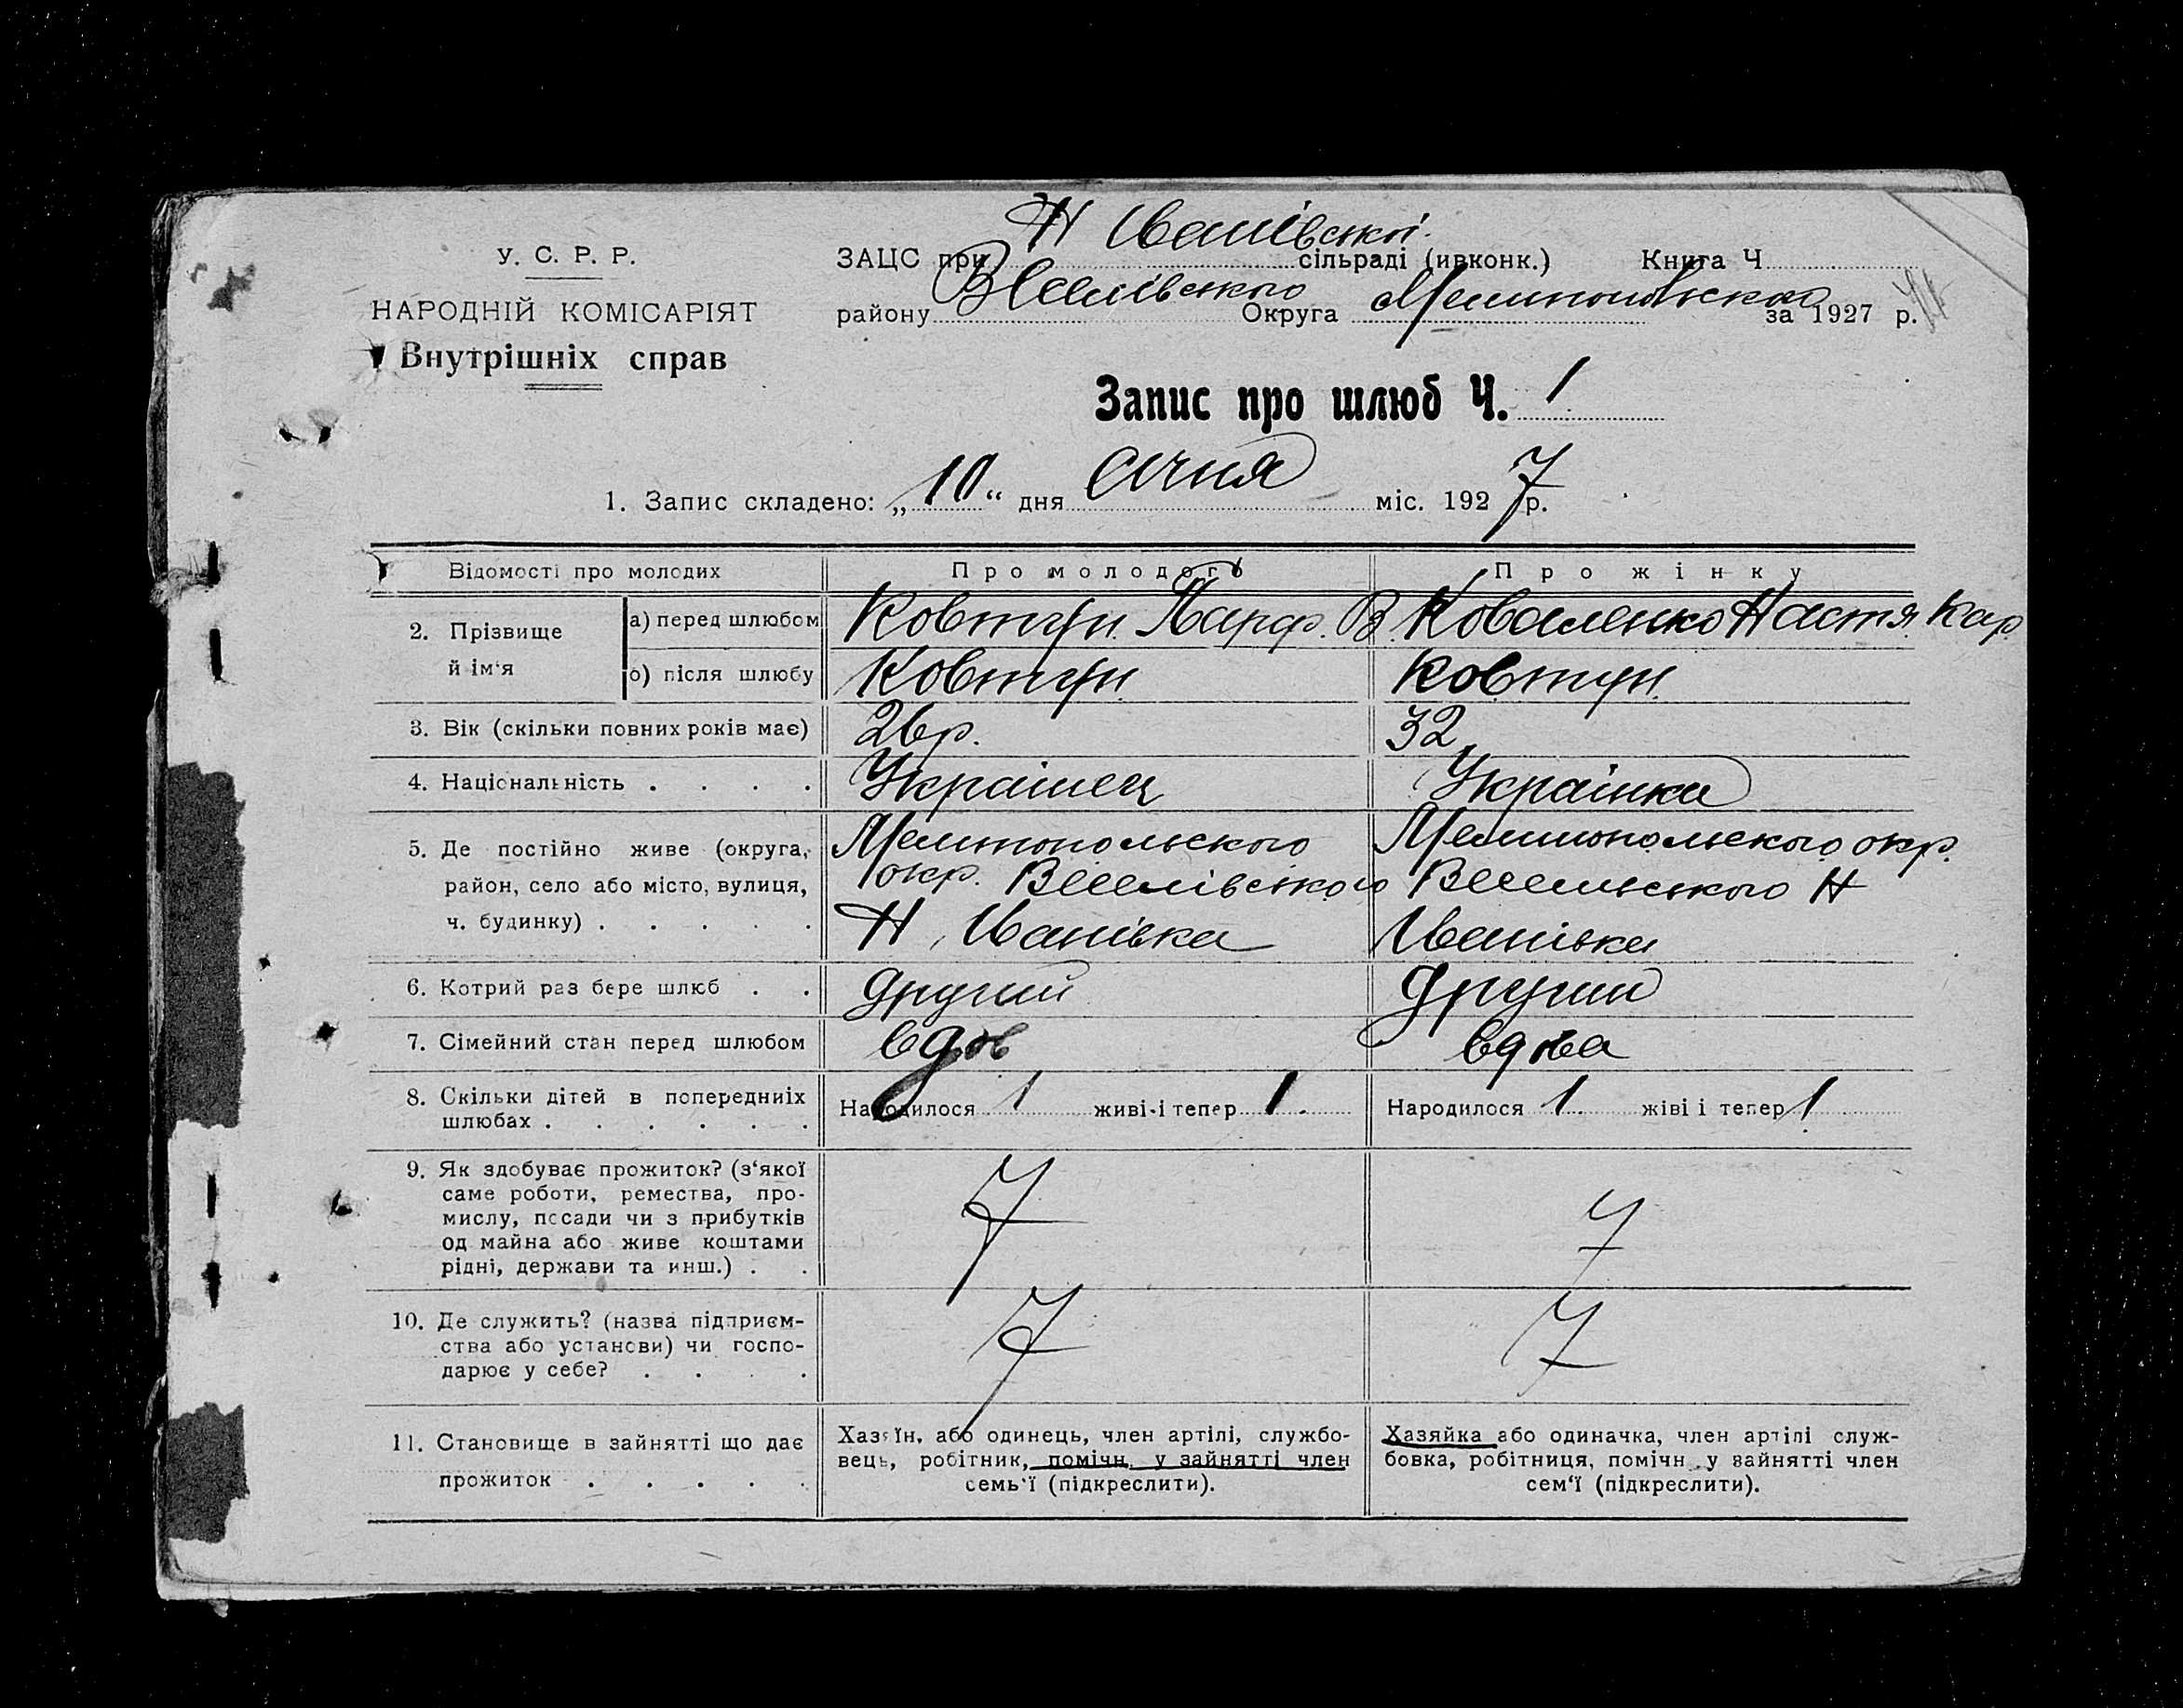 У. С. Р. Р.
НАРОДНІЙ КОМІСАРІЯТ
Внутрішніх справ
ЗАЦС при Н Іванівській сільраді (ивконк.) Книга Ч.
району Веселівського Округа Мелитопольської за 1927 р.
Запис про шлюб Ч. 1
1. Запис складено: „10“ дня січня міс. 1927 р.
Відомості про молодих Про молодого Про жінку
2. Прізвище й ім‘я
а) перед шлюбом Ковтун Парф. В. Коваленко Настя Кар.
б) після шлюбу Ковтун Ковтун
3. Вік (скільки повних років має) 26 р. 32
4. Національність . . . . Українец Українка
5. Де постійно живе (округа, Мелитопольського Мелитопольського окр.
район, село або місто, вулиця, окр. Веселівського Весельського Н
ч. будинку) . . . . . Н Іванівка Іванівка
6. Котрий раз бере шлюб . . другий другий
7. Сімейний стан перед шлюбом вдов вдова
8. Скільки дітей в попередниіх шлюбах . . . . . .
Народилося 1 живі-і тепер 1. Народилося 1. жіві і тепер 1
9. Як здобуває прожиток? (з‘якої
саме роботи, ремества, про-
мислу, посади чи з прибутків
од майна або живе коштами
рідні, держави та инш.) . .
10. Де служить? (назва підприєм-
ства або установи) чи госпо-
дарює у себе? . . . .
11. Становище в зайнятті що дає
прожиток . . . . .
Хазяїн, або одинець, член артілі, службо-
вець, робітник, помічн. у зайнятті член
семь‘ї (підкреслити).
Хазяйка або одиначка, член артілі служ-
бовка, робітниця, помічн. у зайнятті член
сем‘ї (підкреслити).